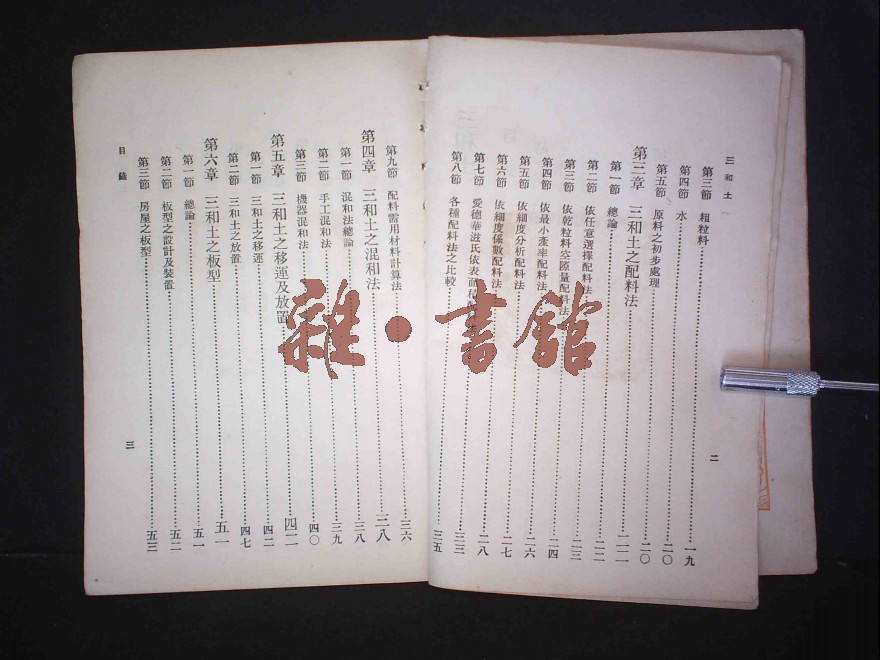 三和土
第三節 粗粒料 一九
第四節 水 二〇
第五節 原料之初步處理 二〇
第三章 三和土之配料法 二二
第一節 總論 二二
第二節 依任意選擇配料法 二三
第三節 依乾粒料空隙量配料法 二三
第四節 依最小產率配料法 二四
第五節 依細度分析配料法 二六
第六節 依細度係數配料法 二七
第七節 愛德華滋氏依表面 二八
第八節 各種配料法之比較 三三
二
第九節 配料需用材料計算法 三六
第四章 三和土之混和法 三八
第一節 混和法總論 三八
第二節 手工混和法 三九
第三節 機器混和法 四〇
第五章 三和土之移運及放置 四二
第一節 三和土之移運 四二
第二節 三和土之放置 四七
第六章 三和土之板型 五一
第一節 總論 五一
第二節 板型之設計及裝置 五二
第三節 房屋之板型 五三
目錄
三
雜·書館